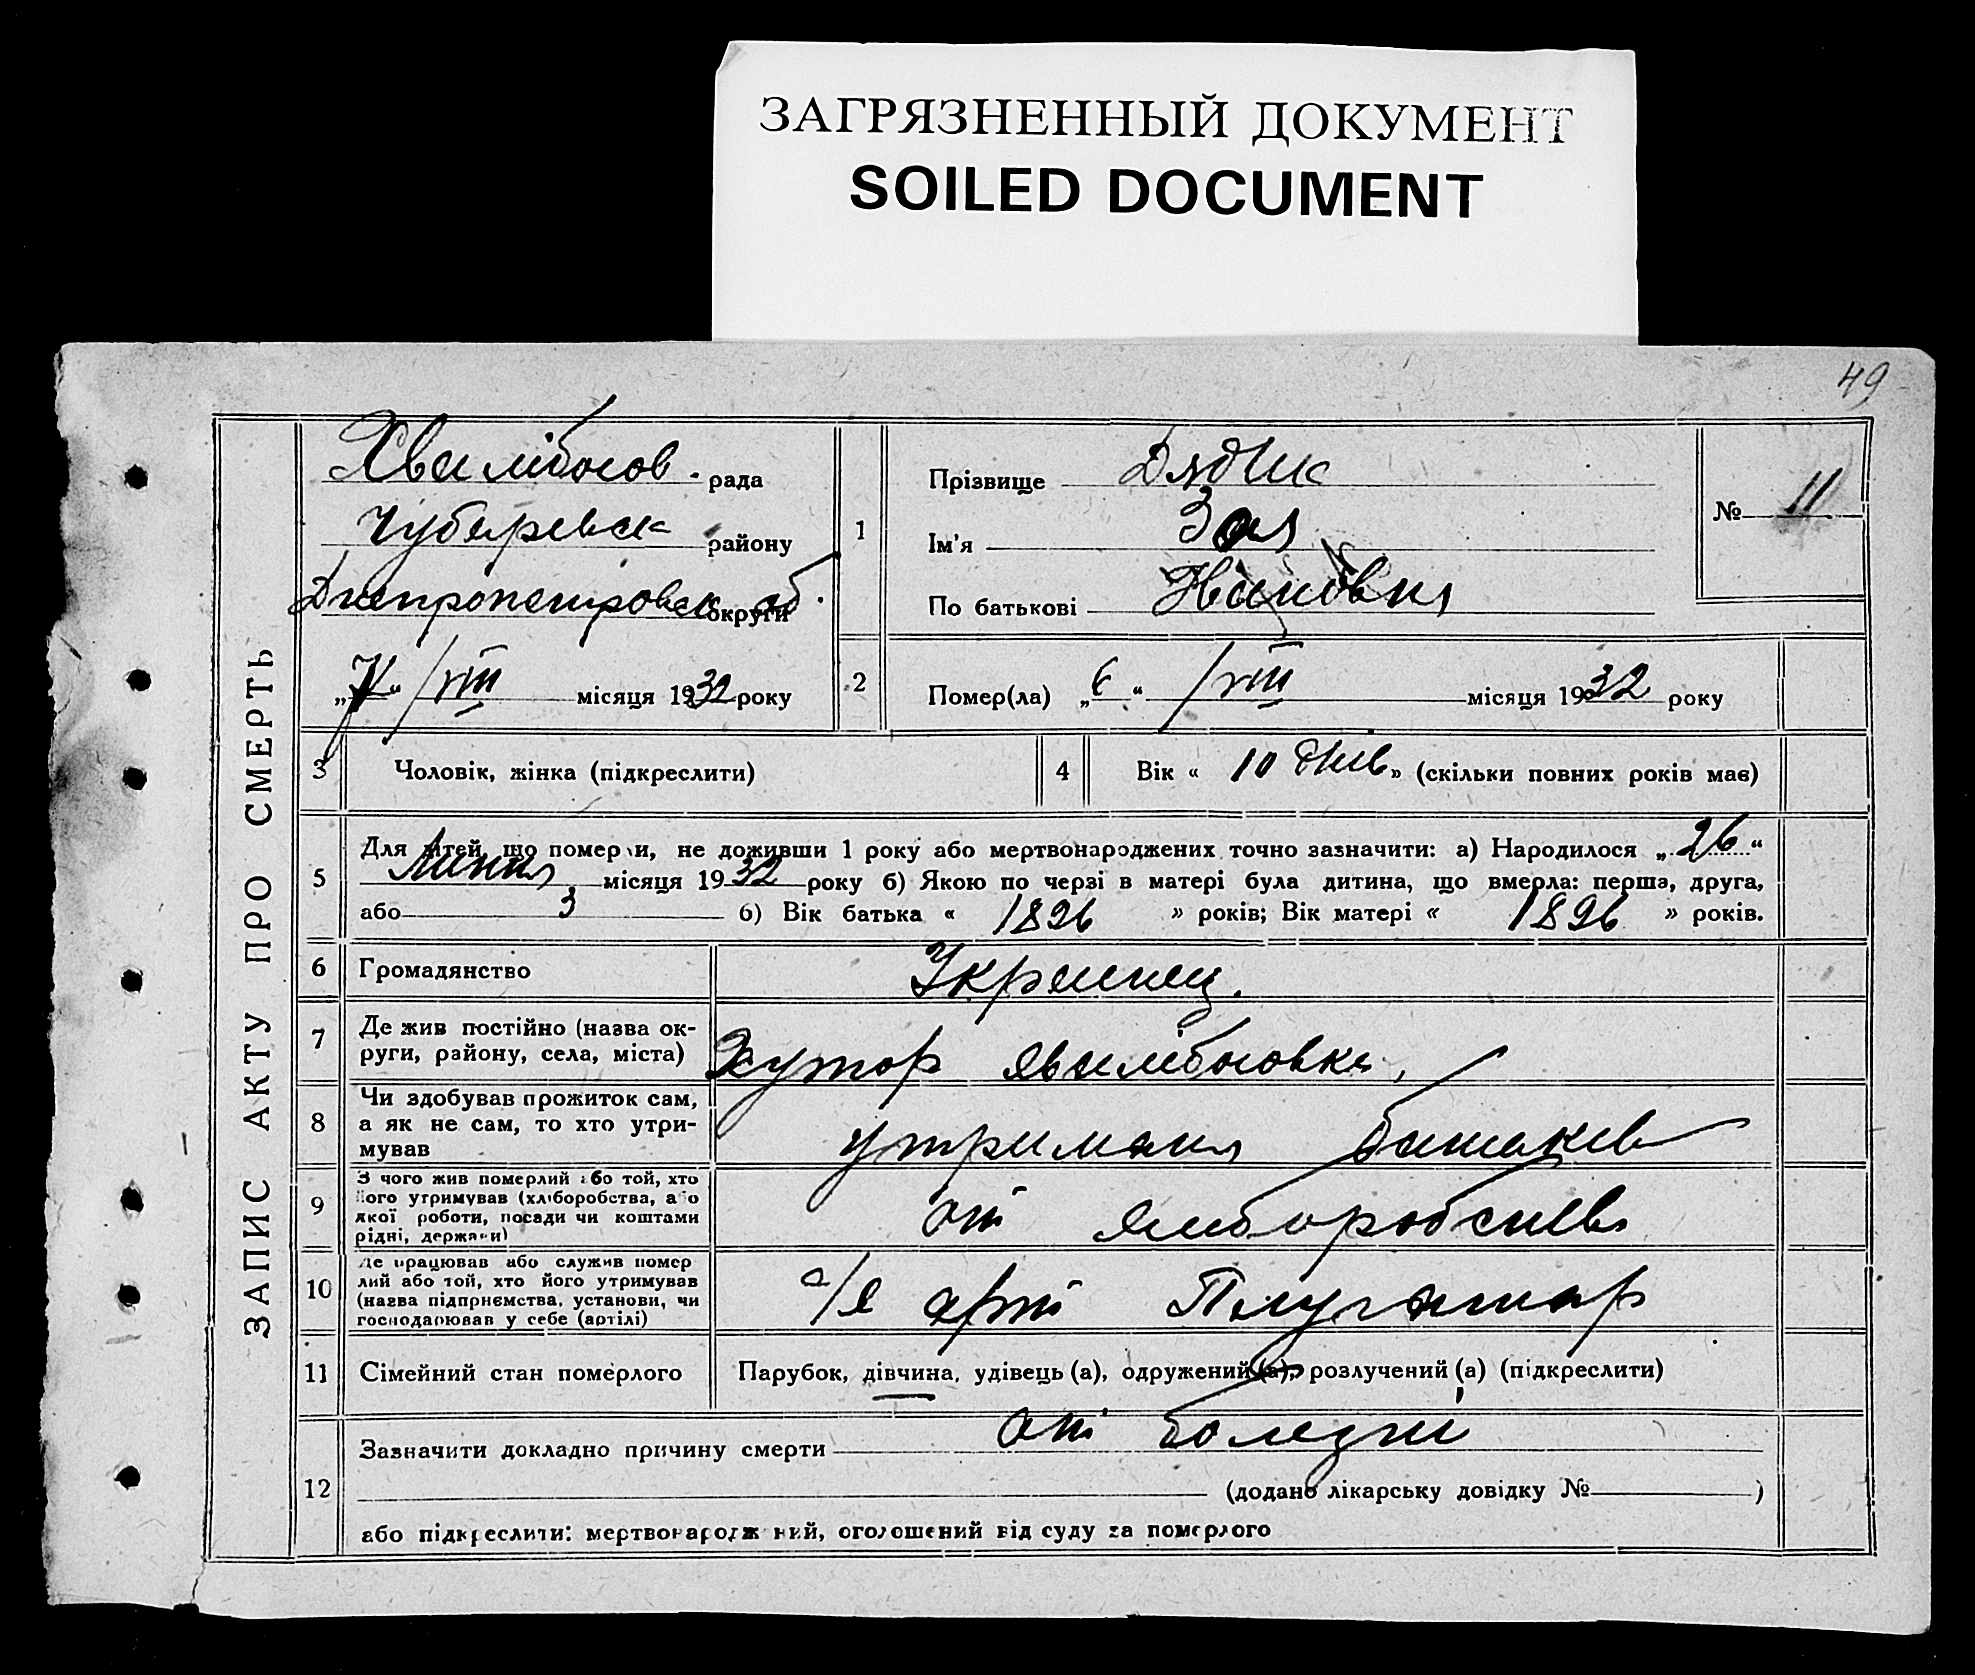 ЗАГРЯЗНЕННЫЙ ДОКУМЕНТ
SOILED DOCUMENT
49
ЗАПИС АКТУ ПРО СМЕРТЬ
Хвилібогов. рада
Чуберевск району
Днепропетровск об. округи
„7“ /VIII місяця 1932 року
1
Прізвище Дядик
Ім'я Зоя
По батькові Івановня
№ 11
2
Помер(ла) „6“ /VIII місяця 1932 року
3 Чоловік, жінка (підкреслити)
4 Вік « 10 днів » (скільки повних років має)
5 Для дітей, що померли, не доживши 1 року або мертвонароджених точно зазначити: а) Народилося „ 26 “
Липня місяця 1932 року б) Якою по черзі в матері була дитина, що вмерла: перша, друга,
або 3 б) Вік батька « 1896 » років; Вік матері « 1896 » років.
6 Громадянство Украинец.
7 Де жив постійно (назва ок-
руги, району, села, міста) Хутор Хвилібоговка,
8 Чи здобував прожиток сам,
а як не сам, то хто утри-
мував утриманя батьків
9 З чого жив померлий або той, хто
його утримував (хліборобства, або
якої роботи, посади чи коштами
рідні, держави) от хліборобсива
10 Де працював або служив помер
лий або той, хто його утримував
(назва підприємства, установи, чи
господарював у себе (артілі) с/г арті Плугатар
11 Сімейний стан померлого Парубок, дівчина, удівець (а), одружений (а), розлучений (а) (підкреслити)
12 Зазначити докладно причину смерти от болезні
(додано лікарську довідку № )
або підкреслити: мертвонароджений, оголошений від суду за померлого